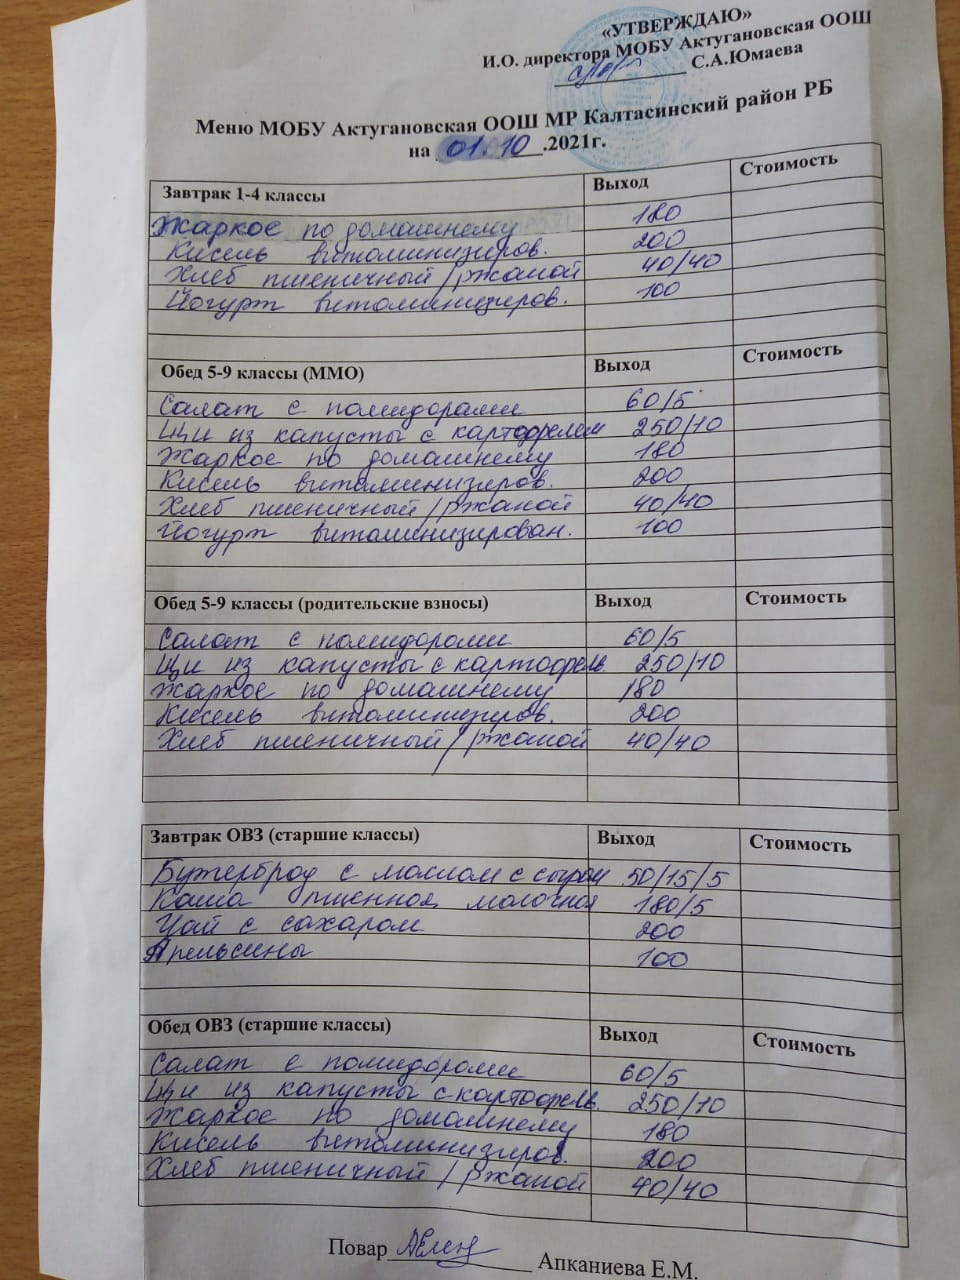 «УТВЕРЖДАЮ»
И.О. директора МОБУ Актугановская ООШ
С.А.Юмаева
Меню МОБУ Актугановская ООШ МР Калтасинский район РБ
на 01.10.2021г.
Завтрак 1-4 классы Выход Стоимость
Жаркое по домашнему 180
Кисель витаминизиров. 200
Хлеб пшеничный/ржаной 40/40
Йогурт витаминизиров. 100
Обед 5-9 классы (ММО) Выход Стоимость
Салат с помидорами 60/5
Щи из капусты с картофелем 250/10
Жаркое по домашнему 180
Кисель витаминизиров. 200
Хлеб пшеничный/ржаной 40/40
Йогурт витаминизирован. 100
Обед 5-9 классы (родительские взносы) Выход Стоимость
Салат с помидорами 60/5
Щи из капусты с картофель 250/10
Жаркое по домашнему 180
Кисель витаминизиров. 200
Хлеб пшеничный/ржаной 40/40
Завтрак ОВЗ (старшие классы) Выход Стоимость
Бутерброд с маслом с сыром 50/15/5
Каша пшенная, молочная 180/5
Чай с сахаром 200
Апельсины 100
Обед ОВЗ (старшие классы) Выход Стоимость
Салат с помидорами 60/5
Щи из капусты с картофель. 250/10
Жаркое по домашнему 180
Кисель витаминизиров. 200
Хлеб пшеничный/ржаной 40/40
Повар Апканиева Е.М.